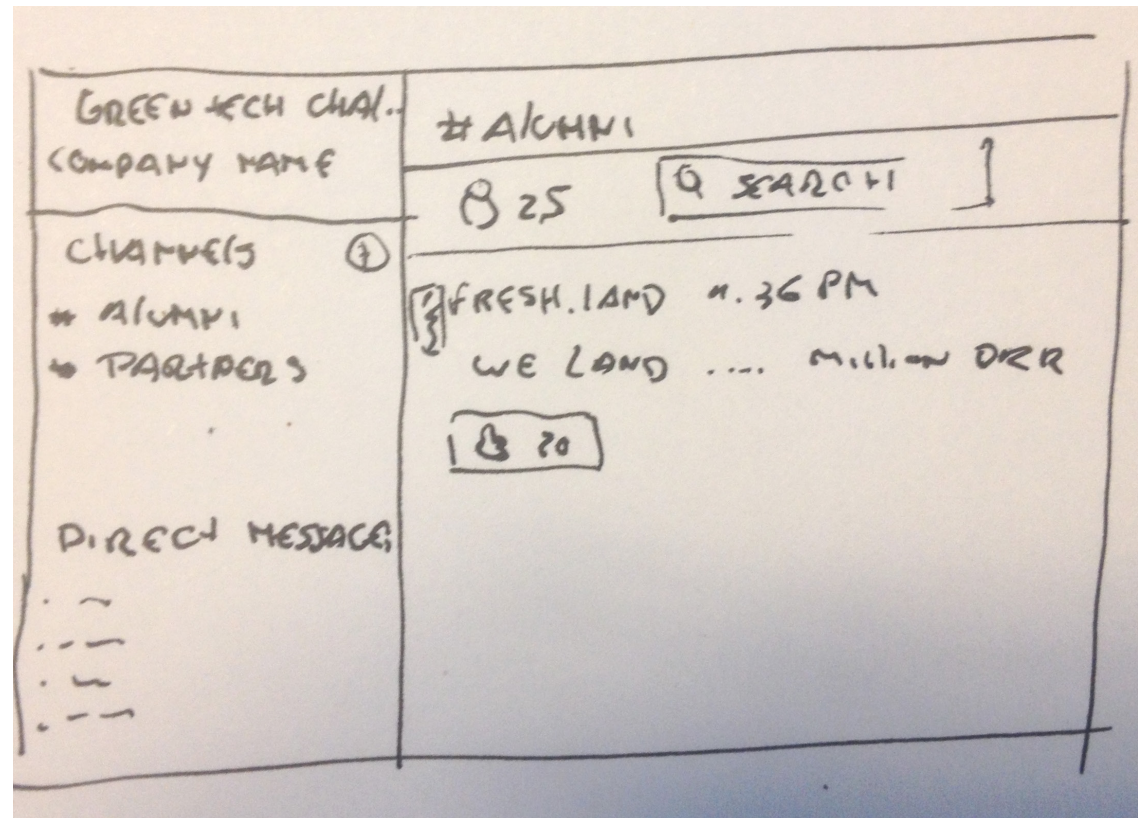 GREEN TECH CHAL..
COMPANY NAME
CHANNELS +
# ALUMNI
# PARTNERS
DIRECT MESSAGES
# ALUMNI
25 SEARCH
FRESH.LAND 36 PM
WE LAND .... MILLION DKK
20